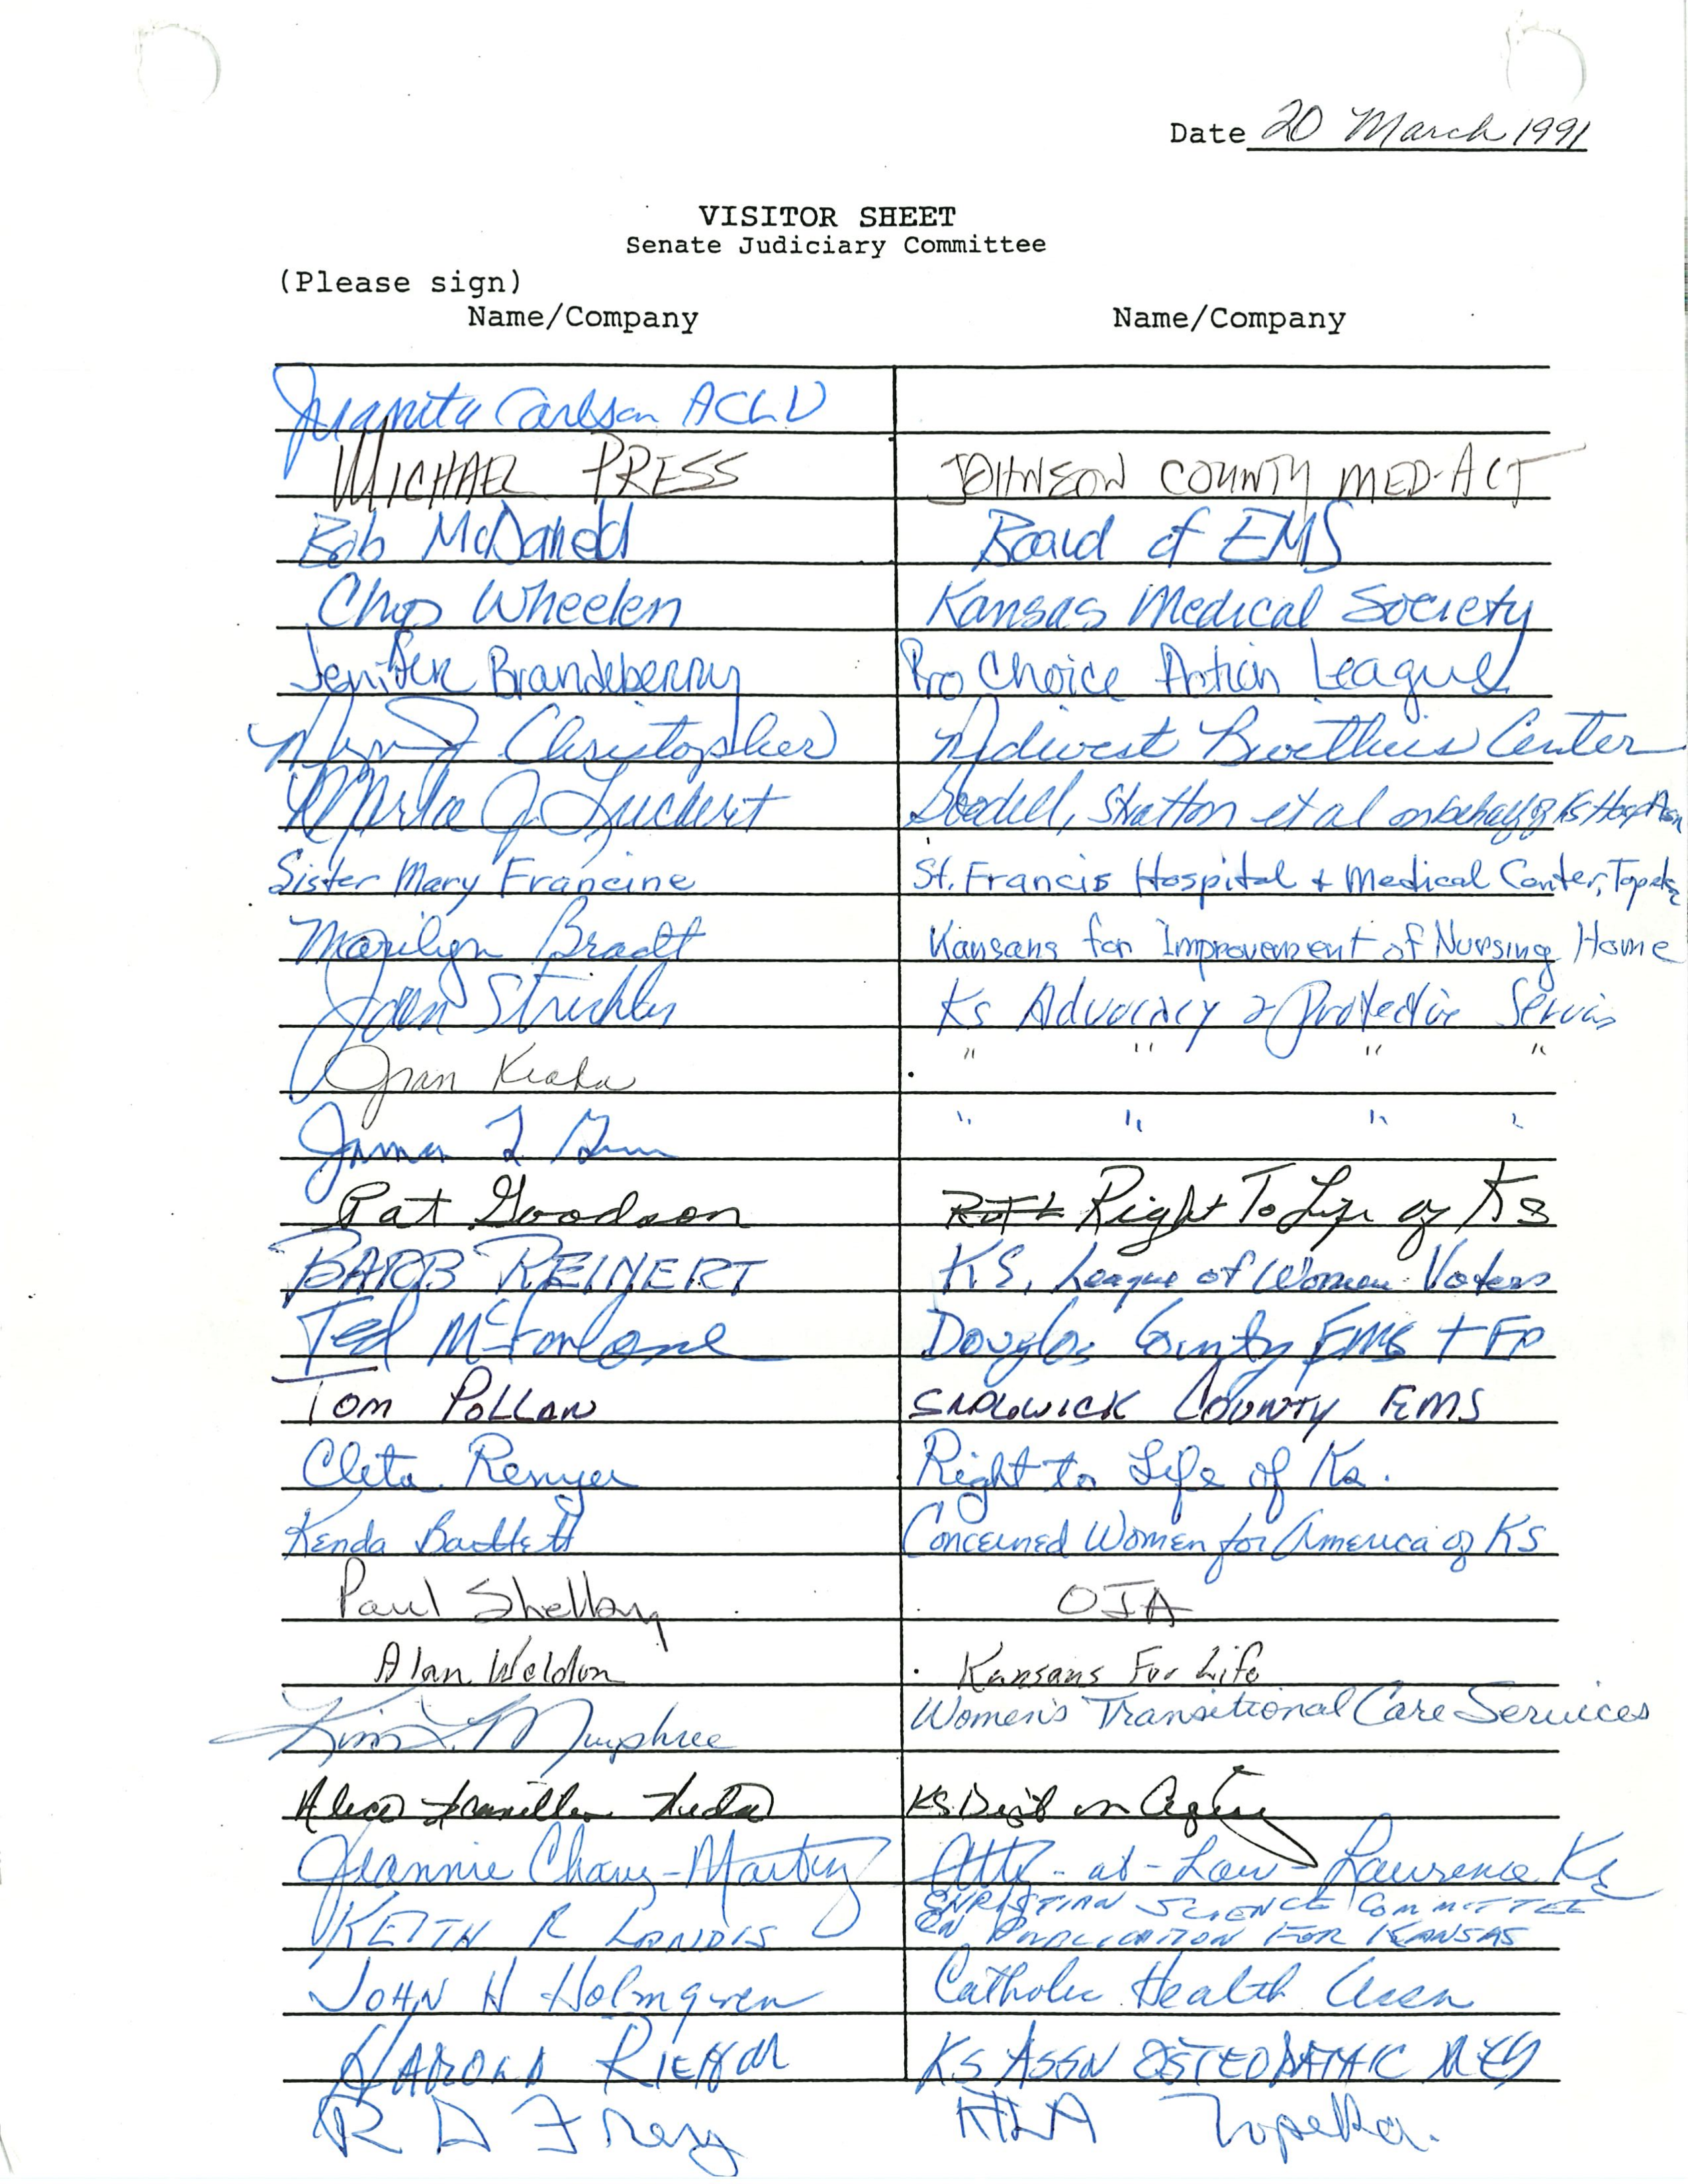 Date 20 March 1991
VISITOR SHEET
Senate Judiciary Committee
(Please sign)
Name/Company Name/Company
Juanita Carlson ACLU
MICHAEL PRESS JOHNSON COUNTY MED-ACT
Bob McDaneld Board of EMS
Chip Wheelen Kansas Medical Society
Jenifer Brandeberry Pro Choice Action League
Christopher Midwest Bioethics Center
Marla J. Luckert Goodell, Stratton et al on behalf of Ks Hosp Assn
Sister Mary Francine St. Francis Hospital + Medical Center, Topeka
Marilyn Bradt Kansans for Improvement of Nursing Home
Joan Strickler Ks Advocacy & Protective Services
Joan " " " "
James L " " " "
Pat Goodson Right To Life of Ks
BARB REINERT KS. League of Women Voters
Ted McFarlane Douglas County EMS +
TOM POLLAN SEDGWICK COUNTY EMS
Cleta Renyer Right to Life of Ks.
Kenda Bartlett Concerned Women for America of KS
Paul Shelby OJA
Alan Weldon Kansans For Life
Kim L. Murphree Women's Transitional Care Services
Alice KS Dept on Aging
Jeannie Chavez-Martinez Atty-at-Law-Lawrence Ks
CHRISTIAN SCIENCE COMMITTEE
KEITH R LANDIS ON PUBLICATION FOR KANSAS
JOHN H Holmgren Catholic Health Assn
HAROLD RIEHM KS ASSN OSTEOPATHIC MED
R D Frey KTLA Topeka.